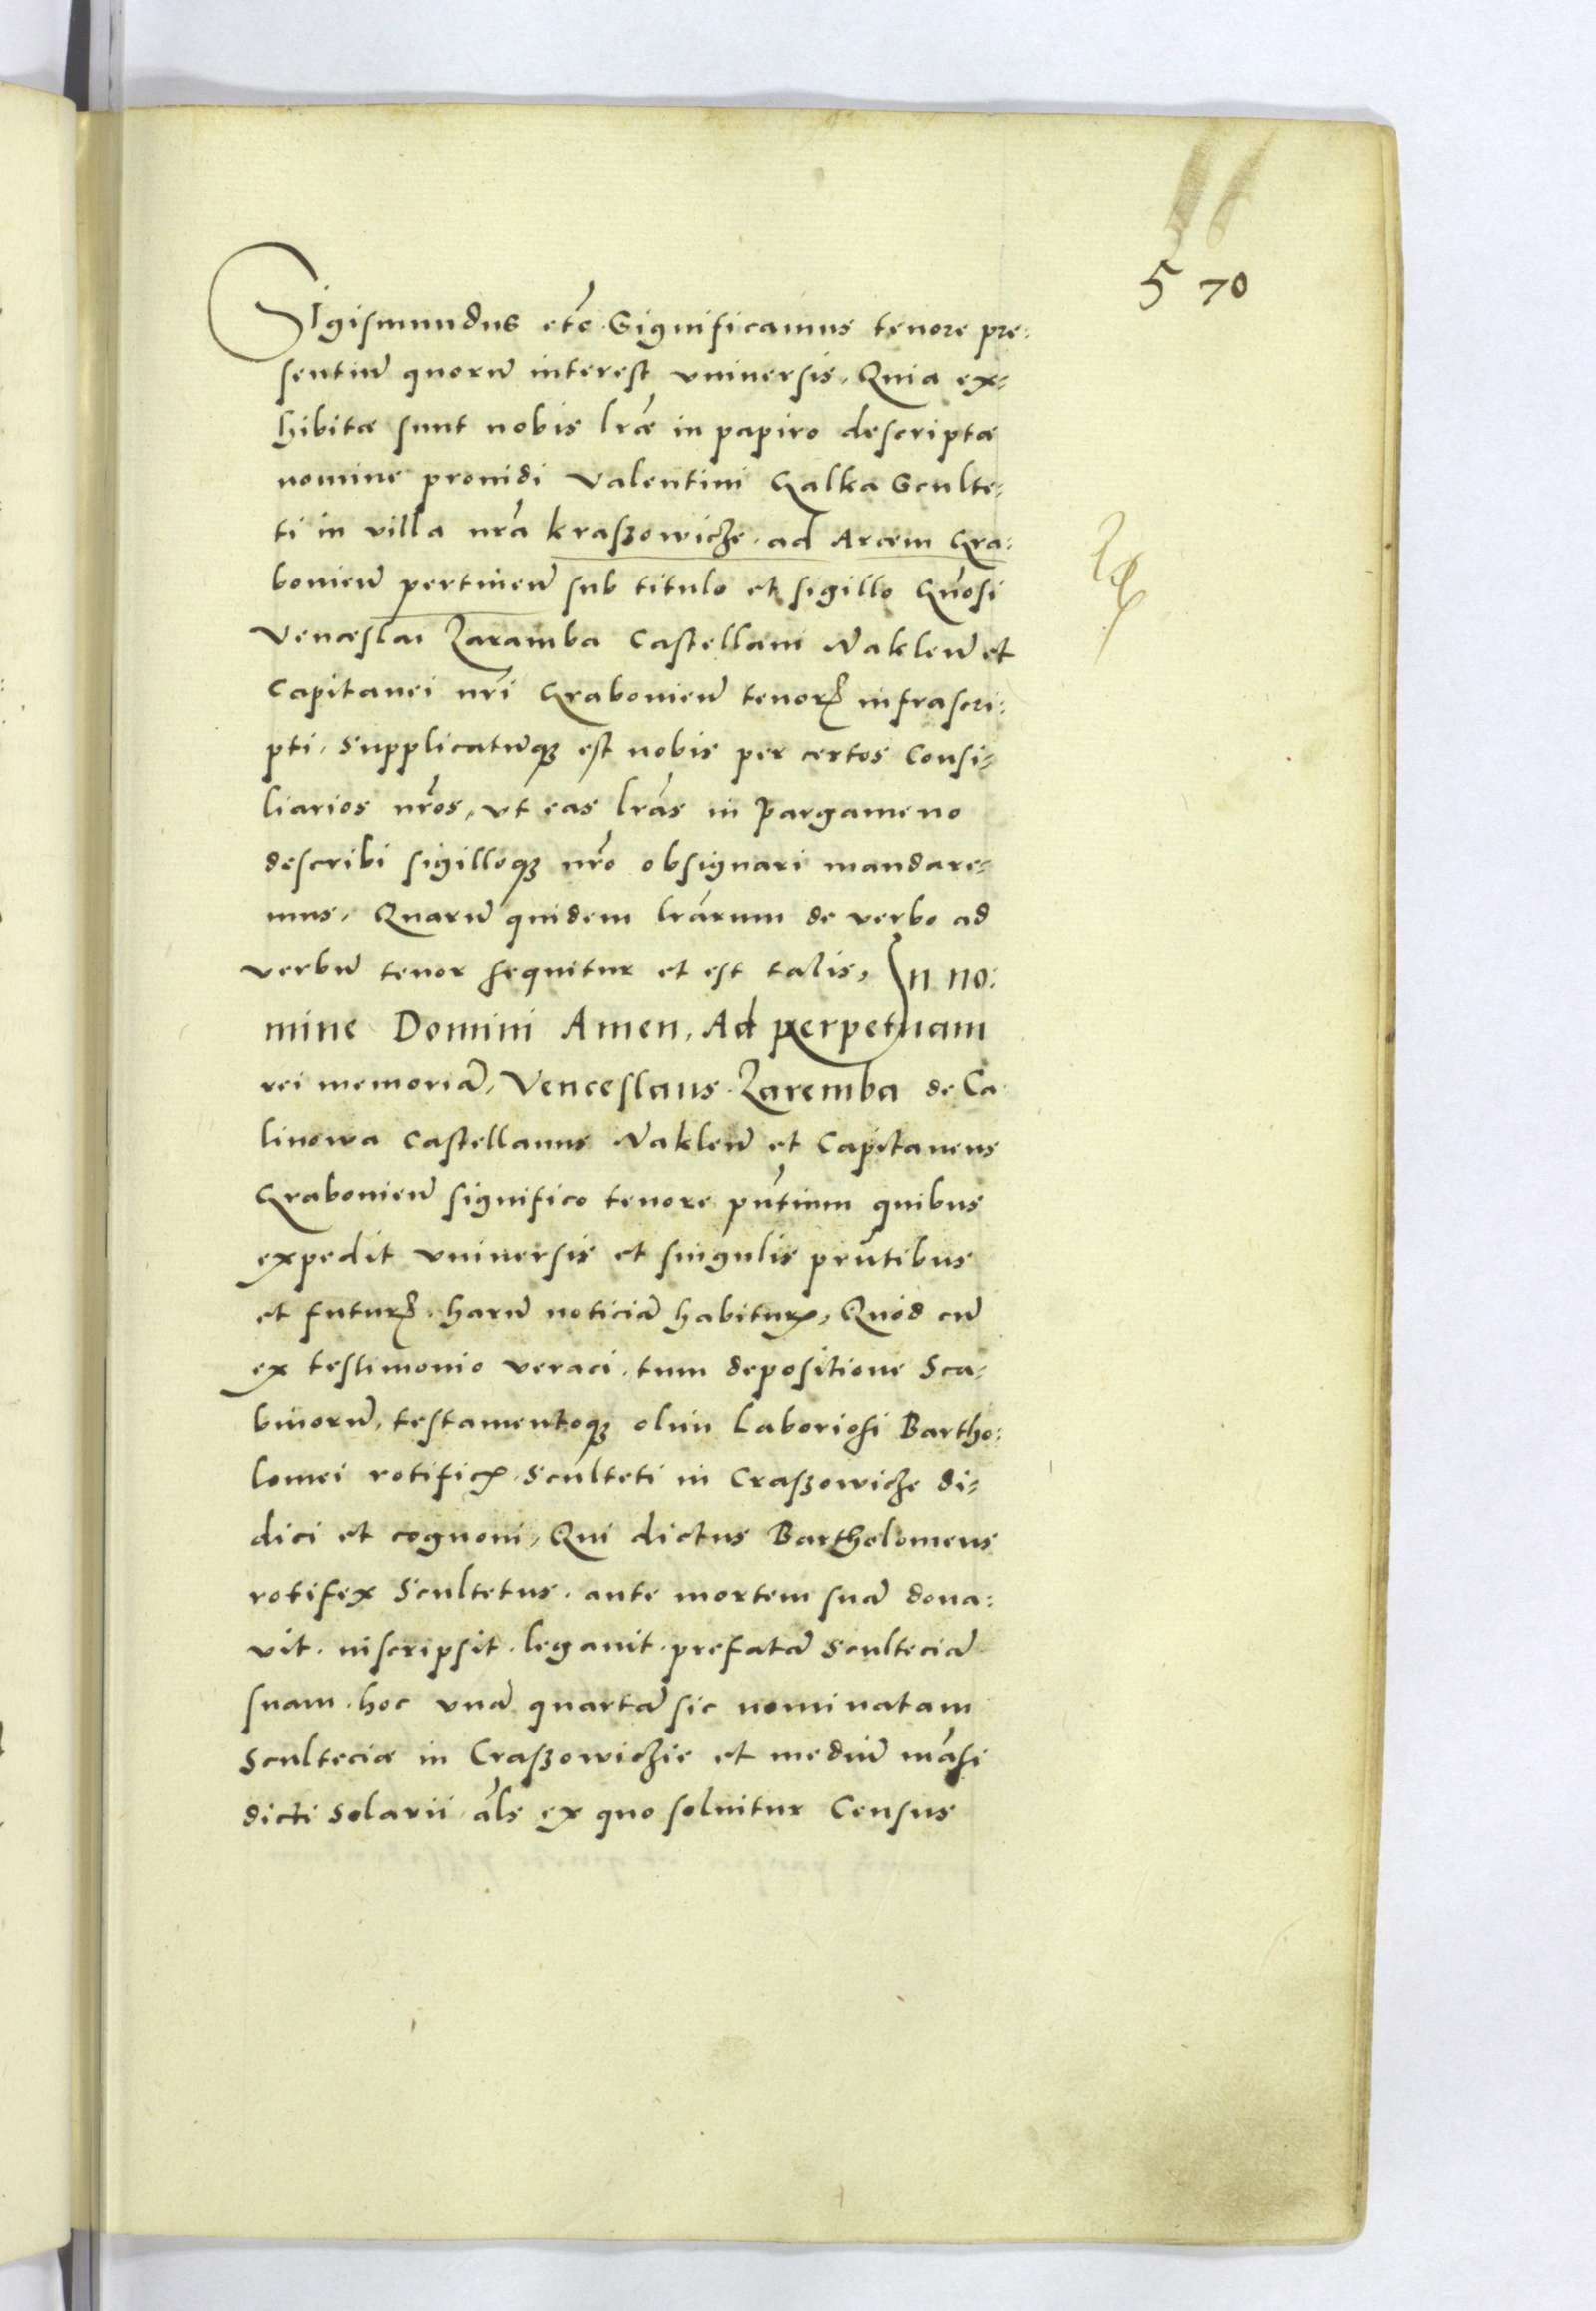 5 70
Sigismundus etc̃. Significamus tenore pre:
sentiũ quorũ interest vniuersis, Quia ex-
hibitæ sunt nobis lr̃æ in papiro descriptæ
nomine prouidi Valentini Galka Sculte-
ti in villa nr̃a kraszowicze. ad Arcem Gra:
bovieñ pertineñ sub titulo et sigillo Gñosi
Venceslai Zaramba Castellani Nakleñ et
Capitanei nr̃i Grabovieñ tenorꝭ infrascri:
pti, Supplicatũqꝫ est nobis per certos Consi-
liarios nr̃os, vt eas lr̃as in Pargameno
describi sigilloqꝫ nr̃o obsignari mandare-
mus, Quarũ quidem lr̃arum de verbo ad
verbũ tenor sequitur et est talis, In no:
mine Domini Amen, Ad perpetuam
rei memoriã, Venceslaus Zaremba de Ca
linowa Castellanus Nakleñ et Capitaneus
Grabovieñ significo tenore pñtium quibus
expedit vniuersis et singulis prñtibus
et futurꝭ. harũ noticiã habiturꝭ, Quòd cũ
ex testimonio veraci. tum depositione Sca-
binorũ, testamentoqꝫ olim Laboriosi Bartho:
lomei rotificꝭ. Sculteti in Craszowicze di-
dici et cognoui, Qui dictus Bartholomeus
rotifex Scultetus. ante mortem suã dona:
vit. inscripsit. legauit. prefatã Sculteciã
suam. hoc vnã quartã sic nominatam
Scultecia in Craszowiczie et mediũ mãsi
dicti Solarii als̃ ex quo soluitur Census